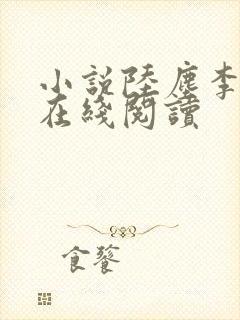 小説陸塵李
在綫閱讀
食饕